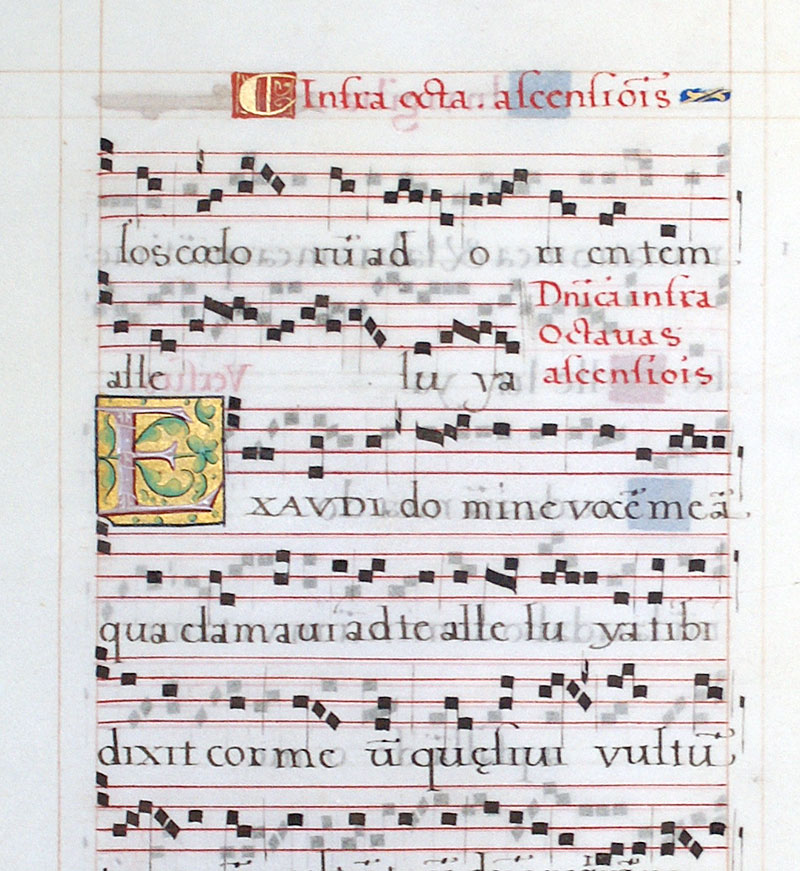 Infra octa. ascensiōis
los cœlo rū ad o ri en tem
alle lu ya
Dnīca infra
Octauas
ascensiois
EXAVDI do mine vocē meā
qua clamaui ad te alle lu ya tibi
dixit cor me ū quęsiui vultū